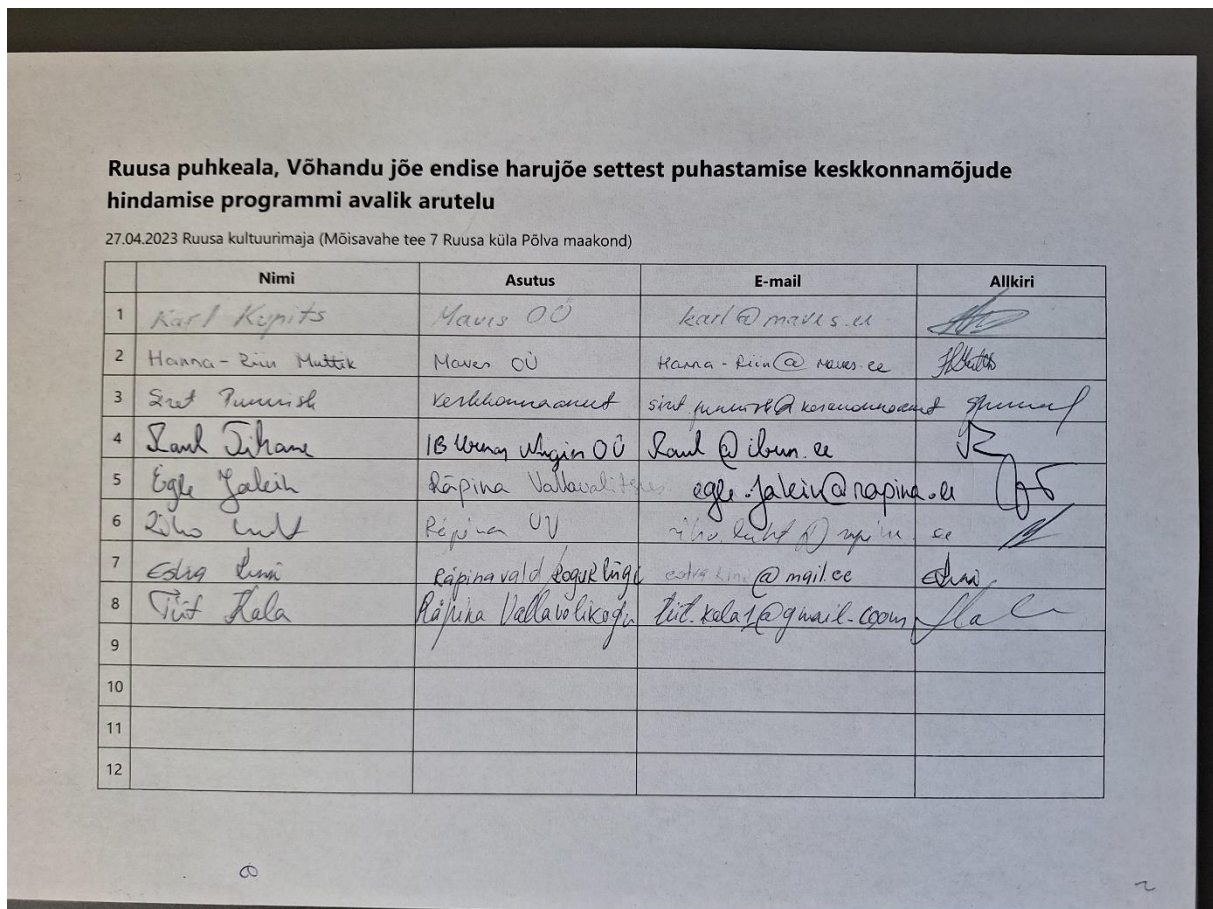 Ruusa puhkeala, Võhandu jõe endise harujõe settest puhastamise keskkonnamõjude
hindamise programmi avalik arutelu
27.04.2023 Ruusa kultuurimaja (Mõisavahe tee 7 Ruusa küla Põlva maakond)
Nimi Asutus E-mail Allkiri
1 Karl Kupits Maves OÜ karl@maves.ee
2 Hanna-Riin Muttik Maves OÜ Hanna-Riin@maves.ee
3 Siret Keskkonnaamet
4 Raul Tihane OÜ Raul@ibun.ee
5 Egle Jalein Räpina Vallavalitsus egle.jalein@rapina.ee
6 Riho Räpina
7 Räpina vald @mail.ee
8 Tiit Kala Räpina Vallavolikogu tiit.kala1@gmail.coom
9
10
11
12